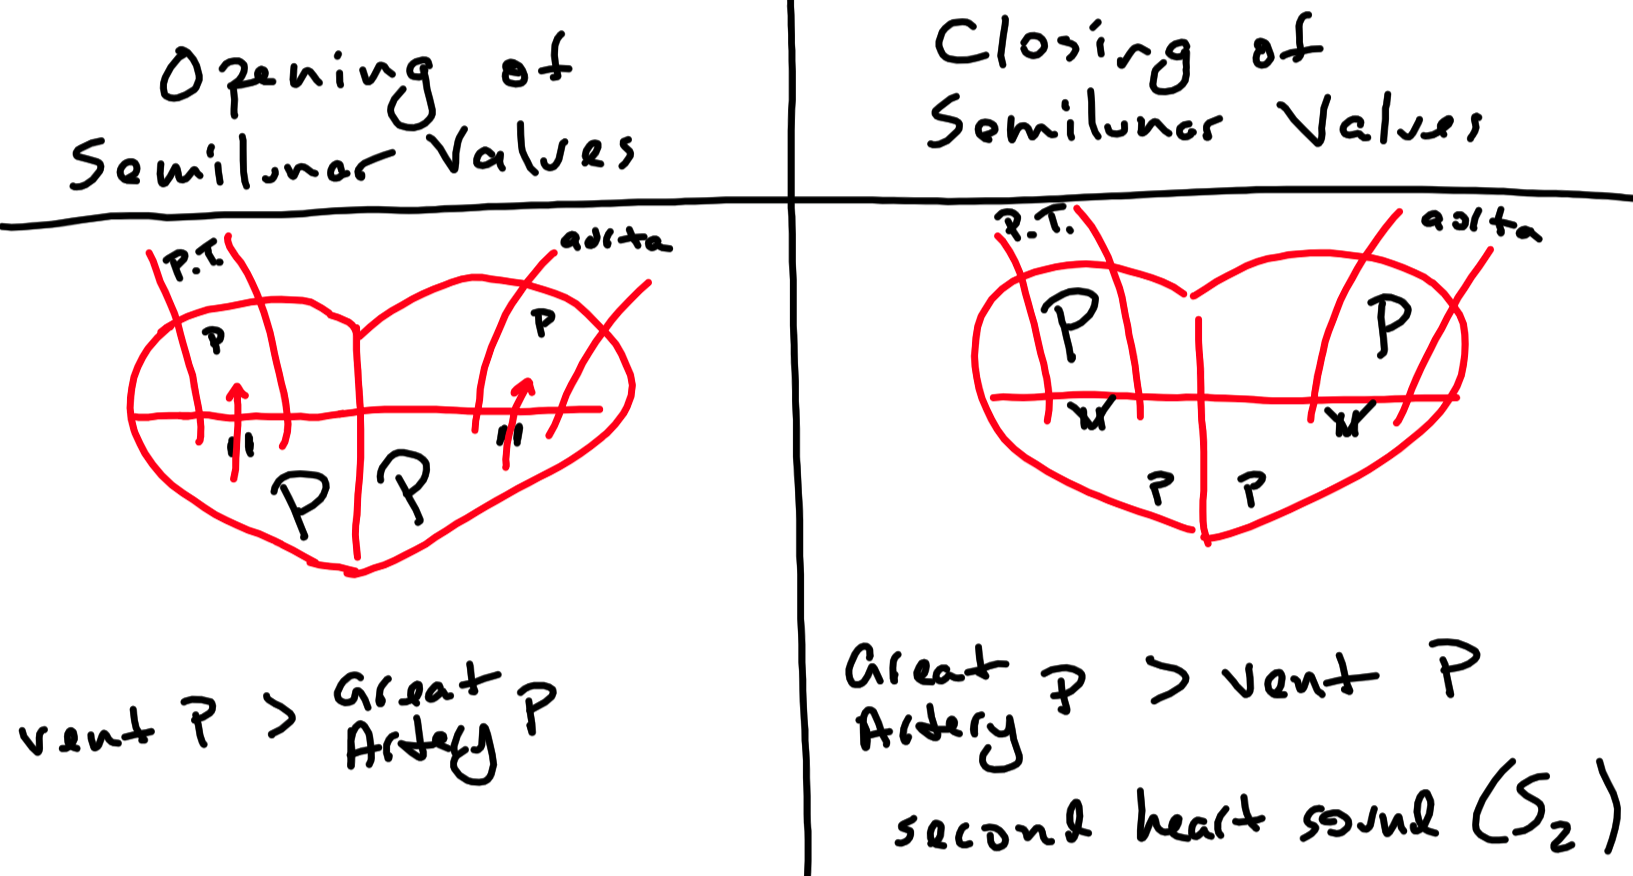 Opening of
Semilunar Valves
P.T.
aorta
P
P
P
P
vent P > Great Artery P
Closing of
Semilunar Valves
P.T.
aorta
P
P
P
P
Great Artery P > vent P
second heart sound (S₂)